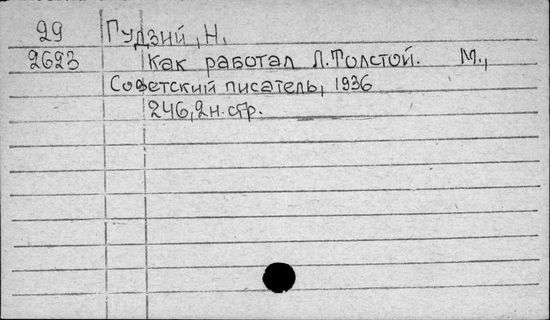 29 Гудзий, Н.
2623 Как работал Л.Толстой. М.,
Советский писатель, 1936
246,2н.стр.